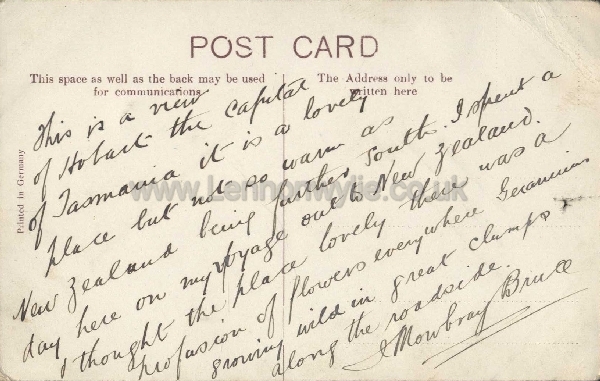 POST CARD
This space as well as the back may be used
for communications
The Address only to be
written here
Printed in Germany
www.Lennonwylie.co.uk
This is a view
of Hobart the capital
of Tasmania it is a lovely
place but not so warm as
New Zealand being further south. I spent a
day here on my voyage out to New Zealand.
I thought the place lovely there was a
profusion of flowers everywhere Geraniums
growing wild in great clumps
along the roadside.
J Mowbray Bruce